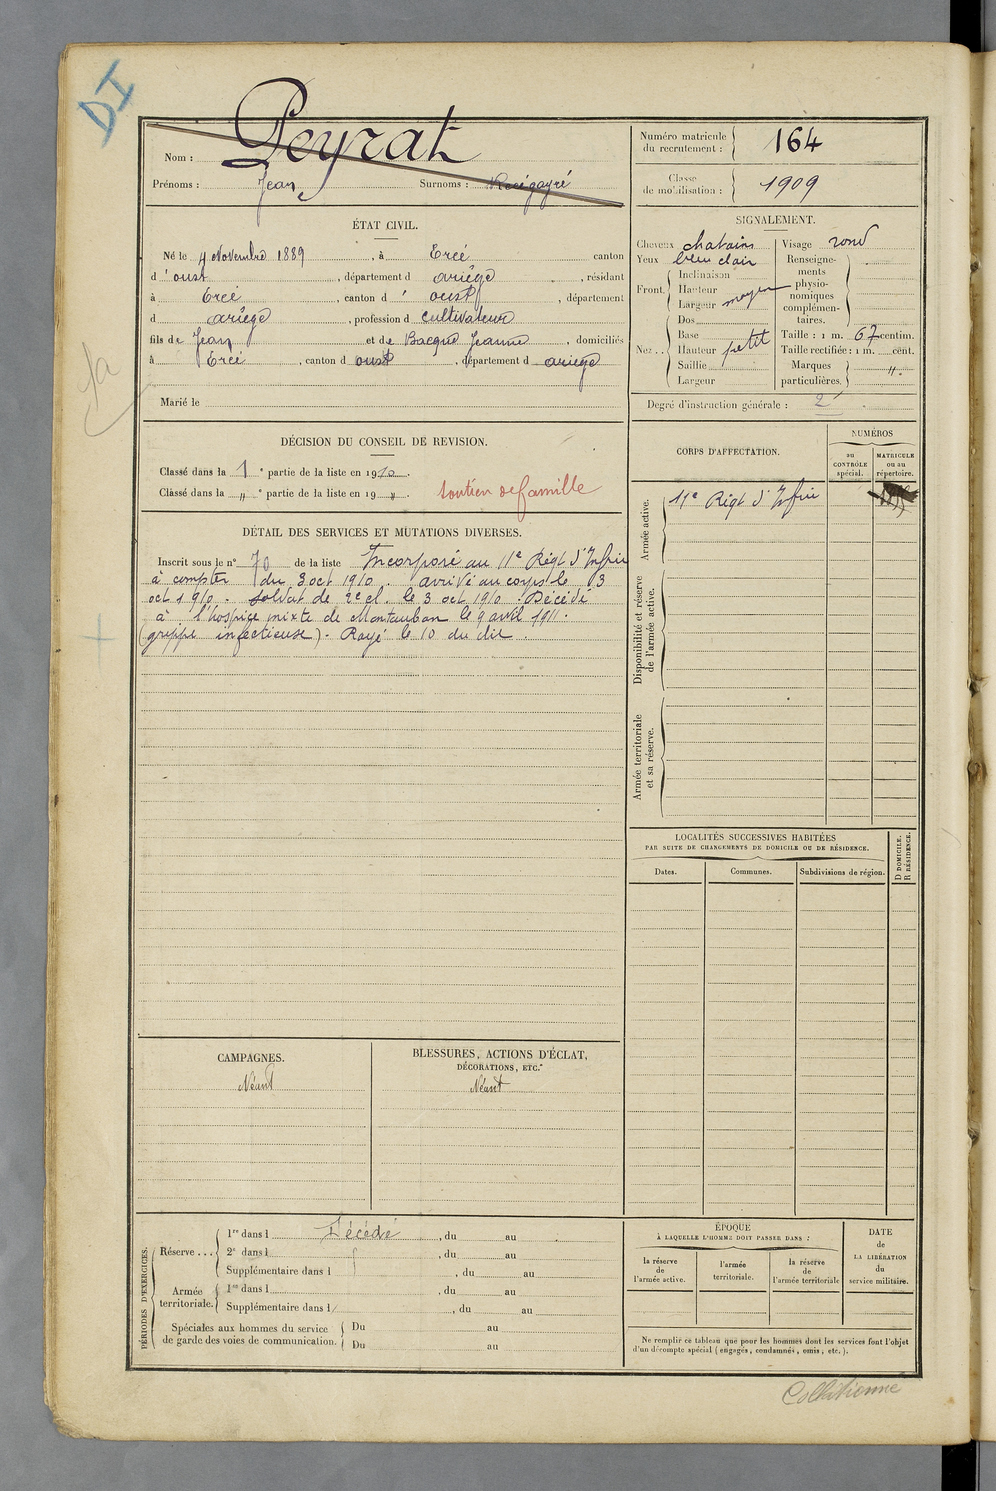 DI
Nom : Peyrat
Prénoms : Jean Surnoms :
Numéro matricule du recrutement : 164
Classe de mobilisation : 1909
ÉTAT CIVIL.
Né le 4 Novembre 1889, à Ercé canton
d'oust, département d ariège, résidant
à Ercé, canton d' oust, département
d ariège, profession de cultivateur
fils de Jean et de Bacqué Jeanne, domiciliés
à Ercé, canton d oust, département d ariège
Marié le
SIGNALEMENT.
Cheveux chatains Visage rond
Yeux bleu clair
Front. Inclinaison
Hauteur
Largeur moyen
Nez.. Dos
Base
Hauteur petit
Saillie
Largeur
Renseignements physionomiques complémentaires.
Taille : 1 m. 67 centim.
Taille rectifiée : 1 m. cent.
Marques particulières. "
Degré d'instruction générale : 2
DÉCISION DU CONSEIL DE REVISION.
Classé dans la 1e partie de la liste en 1910.
Classé dans la " e partie de la liste en 19 "
soutien de famille
DÉTAIL DES SERVICES ET MUTATIONS DIVERSES.
Inscrit sous le n° 70 de la liste Incorporé au 11e Régt d'Infrie
à compter du 3 oct 1910. arrivé au corps le 3
oct 1910. soldat de 2e cl. le 3 oct 1910. Décédé
à l'hospice mixte de Montauban le 9 avril 1911.
(grippe infectieuse). Rayé le 10 du dit.
CORPS D'AFFECTATION.
NUMÉROS
au CONTRÔLE spécial.
MATRICULE ou au répertoire.
Armée active.
11e Régt d'Infrie
Disponibilité et réserve de l'armée active.
Armée territoriale et sa réserve.
LOCALITÉS SUCCESSIVES HABITÉES
PAR SUITE DE CHANGEMENTS DE DOMICILE OU DE RÉSIDENCE.
D DOMICILE.
R RÉSIDENCE.
Dates. Communes. Subdivisions de région.
CAMPAGNES.
Néant
BLESSURES, ACTIONS D'ÉCLAT,
DÉCORATIONS, ETC.
Néant
PÉRIODES D'EXERCICES.
Réserve... 1re dans l Décédé, du au
2e dans l, du au
Supplémentaire dans l, du au
Armée territoriale. 1re dans l, du au
Supplémentaire dans l, du au
Spéciales aux hommes du service de garde des voies de communication. Du au
Du au
ÉPOQUE
À LAQUELLE L'HOMME DOIT PASSER DANS :
la réserve de l'armée active.
l'armée territoriale.
la réserve de l'armée territoriale
DATE de LA LIBÉRATION du service militaire.
Ne remplir ce tableau que pour les hommes dont les services font l'objet
d'un décompte spécial (engagés, condamnés, omis, etc.).